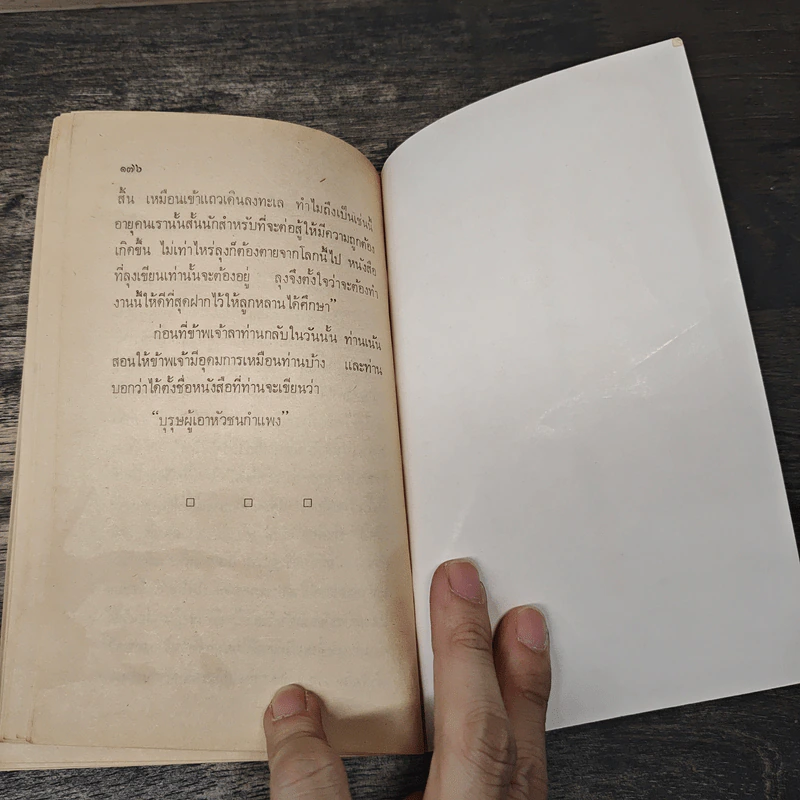 ๑๗๖
สิ้น เหมือนเข้าแถวเดินลงทะเล ทำไมถึงเป็นเช่นนี้
อายุคนเรานั้นสั้นนักสำหรับที่จะต่อสู้ให้มีความถูกต้อง
เกิดขึ้น ไม่เท่าไหร่ลุงก็ต้องตายจากโลกนี้ไป หนังสือ
ที่ลุงเขียนเท่านั้นจะต้องอยู่ ลุงจึงตั้งใจว่าจะต้องทำ
งานนี้ให้ดีที่สุดฝากไว้ให้ลูกหลานได้ศึกษา”
ก่อนที่ข้าพเจ้าลาท่านกลับในวันนั้น ท่านเน้น
สอนให้ข้าพเจ้ามีอุดมการเหมือนท่านบ้าง และท่าน
บอกว่าได้ตั้งชื่อหนังสือที่ท่านจะเขียนว่า
“บุรุษผู้เอาหัวชนกำแพง”